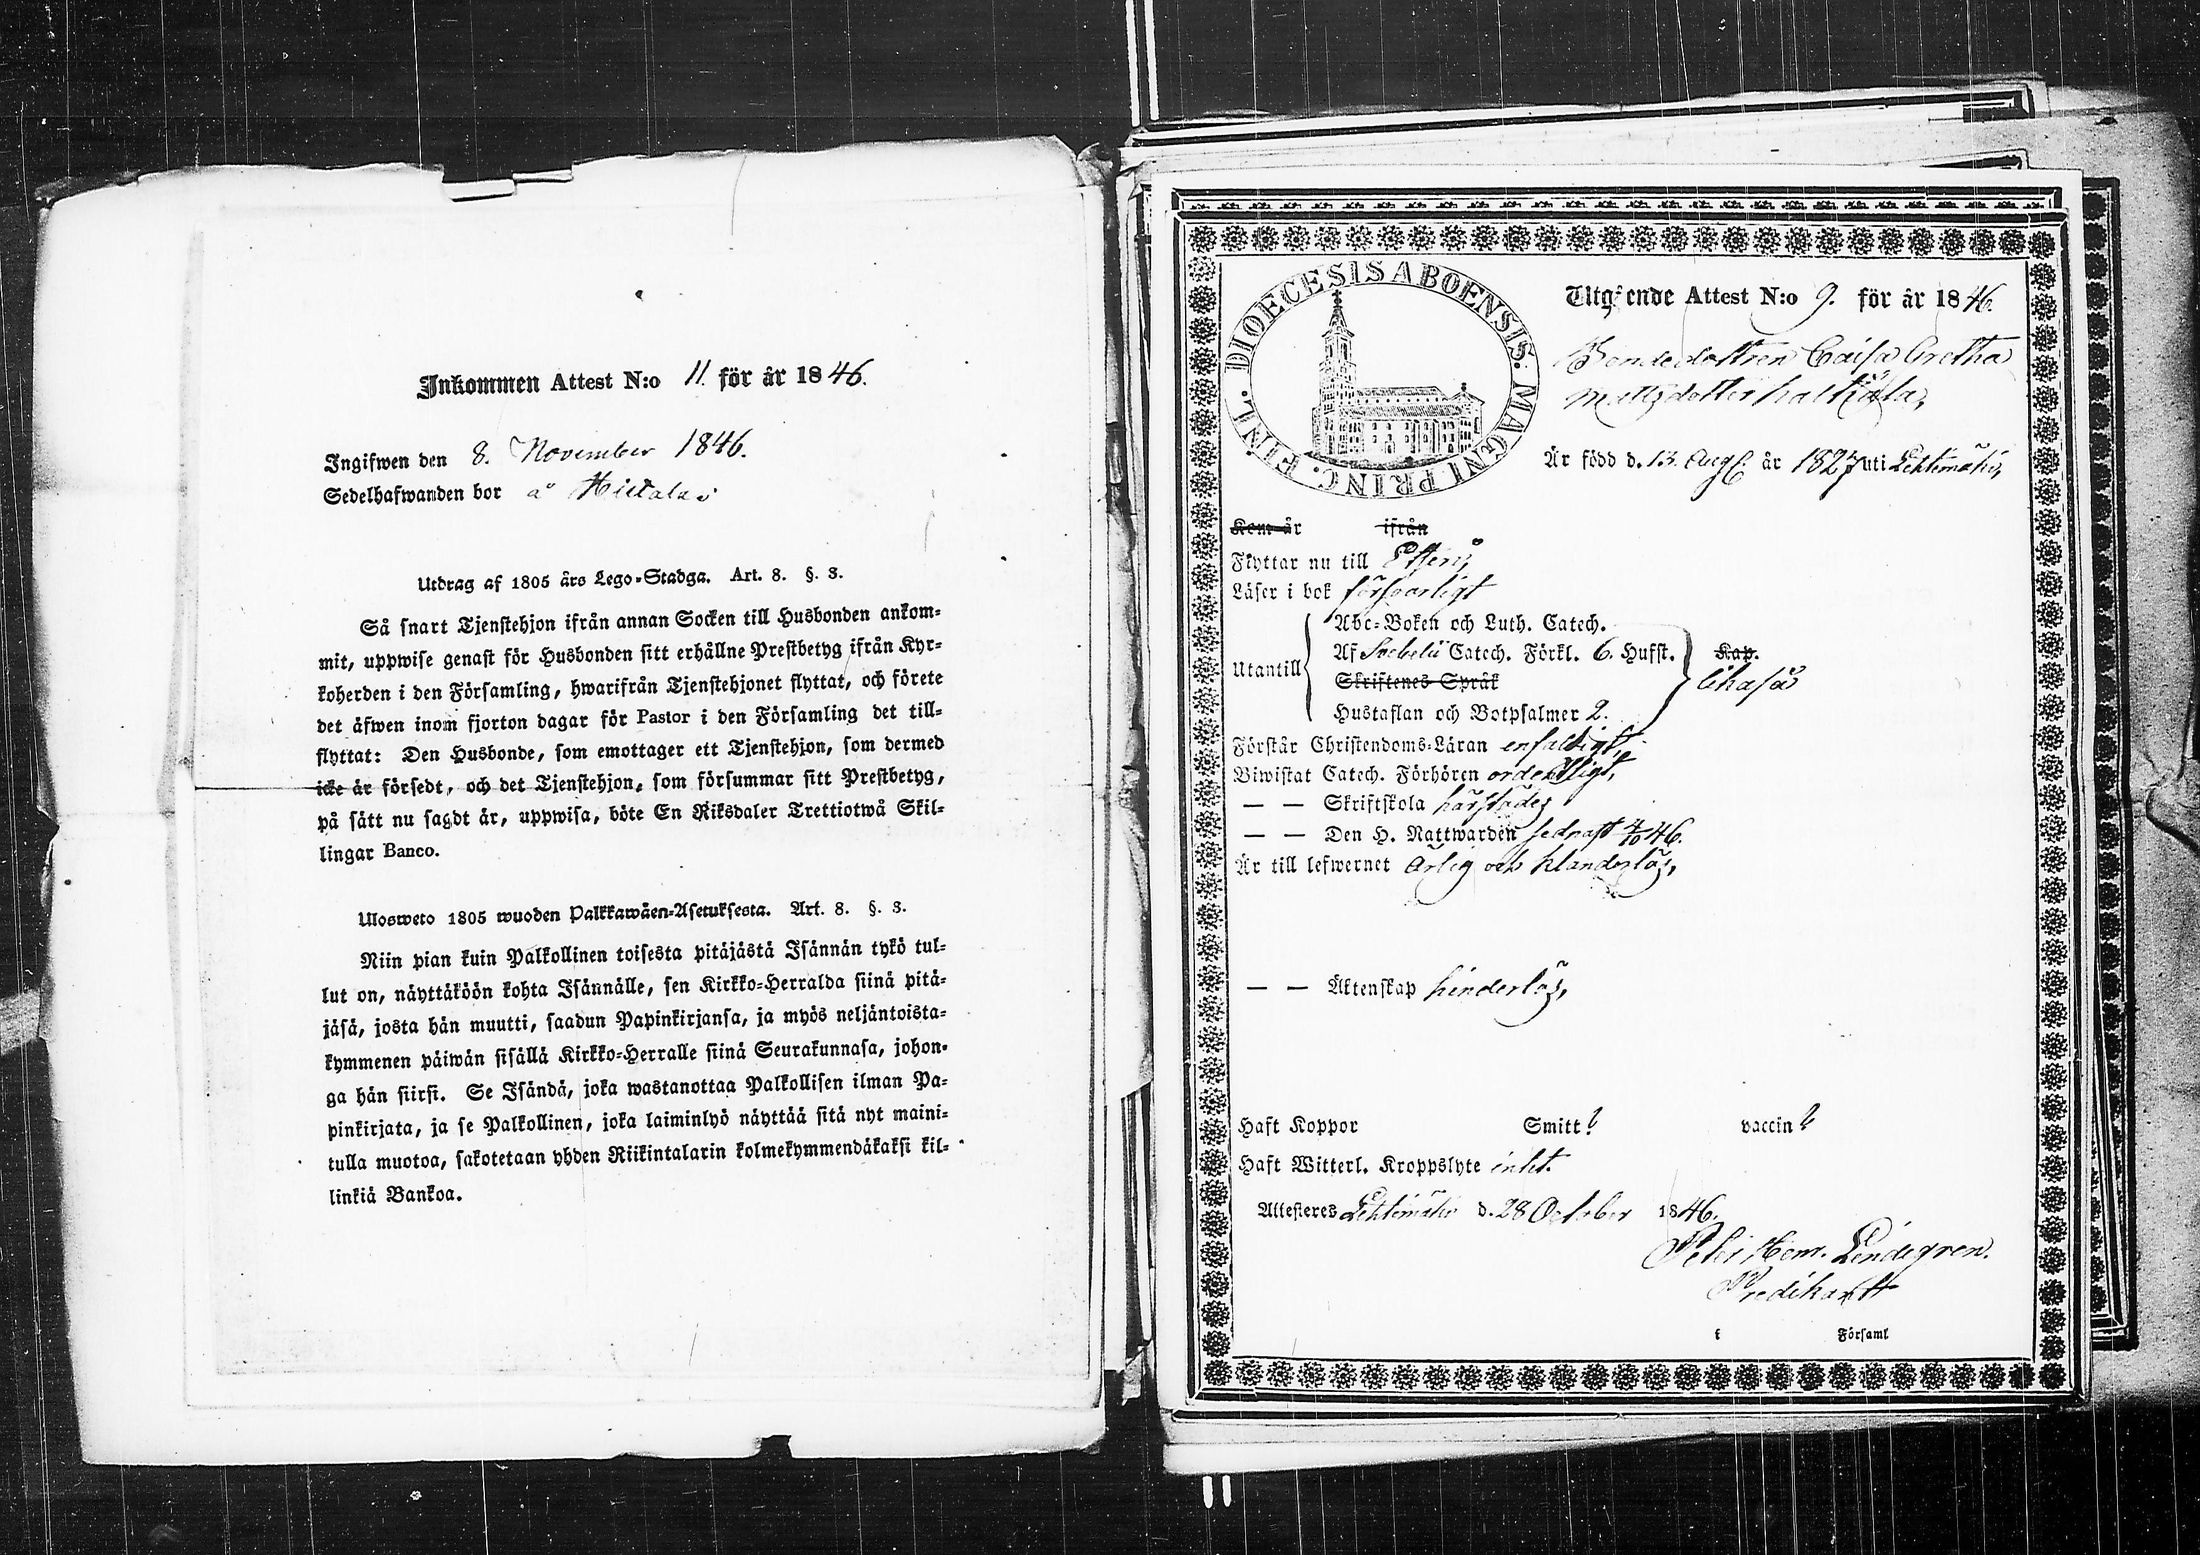 Inkommen Attest N:o 11. för år 1846.
Ingifwen den 8. November 1846.
Sedelhafwanden bor å Hietala
Utdrag af 1805 års Lego-Stadga. Art. 8. §. 3.
Så snart Tjenstehjon ifrån annan Socken till Husbonden ankom-
mit, uppwise genast för Husbonden sitt erhållne Prestbetyg ifrån Kyr-
koherden i den Församling, hwarifrån Tjenstehjonet flyttat, och förete
det äfwen inom fjorton dagar för Pastor i den Församling det till-
flyttat: Den Husbonde, som emottager ett Tjenstehjon, som dermed
icke är försedt, och det Tjenstehjon, som försummar sitt Prestbetyg,
på sätt nu sagdt är, uppwisa, böte En Riksdaler Trettiotwå Skil-
lingar Banco.
Ulosweto 1805 wuoden Palkkawäen-Asetuksesta. Art. 8. §. 3.
Niin pian kuin Palkollinen toisesta pitäjästä Isännän tykö tul-
lut on, näyttäköön kohta Isännälle, sen Kirkko-Herralda siinä pitä-
jäsä, josta hän muutti, saadun Papinkirjansa, ja myös neljäntoista-
kymmenen päiwän sisällä Kirkko-Herralle siinä Seurakunnasa, johon-
ga hän siirsi. Se Isändä, joka wastanottaa Palkollisen ilman Pa-
pinkirjata, ja se Palkollinen, joka laiminlyö näyttää sitä nyt maini-
tulla muotoa, sakotetaan yhden Riikintalarin kolmekymmendäkaksi kil-
linkiä Bankoa.
DIOECESIS ABOENSIS. MAGNI PRINC. FINL.
Utgående Attest N:o 9. för år 1846.
Bondedottren Caisa Gretha
Mattsdotter
Är född d. 13. Aug. år 1827 uti Lehtimäki,
Kom år ifrån
Flyttar nu till Etseri,
Läser i bok försvarligt
Abc-Boken och Luth. Catech.
Utantill Af Svebelii Catech. Förkl. 6. Hufst. Kap.
Skriftenes Språk
Hustaflan och Botpsalmer 2.
Förstår Christendoms-Läran enfaldigt,
Biwistat Catech. Förhören ordentligt,
— — Skriftskola härstädes
— — Den H. Nattwarden sednast 4/10 46.
Är till lefwernet ärlig och klanderlös,
— — Äktenskap hinderlös,
Haft Koppor Smitt. vaccin.
Haft Witterl. Kroppslyte intet.
Attesteres Lehtimäki d. 28 October 1846.
Petr Hem. Lindegren.
Predikant
i Församl